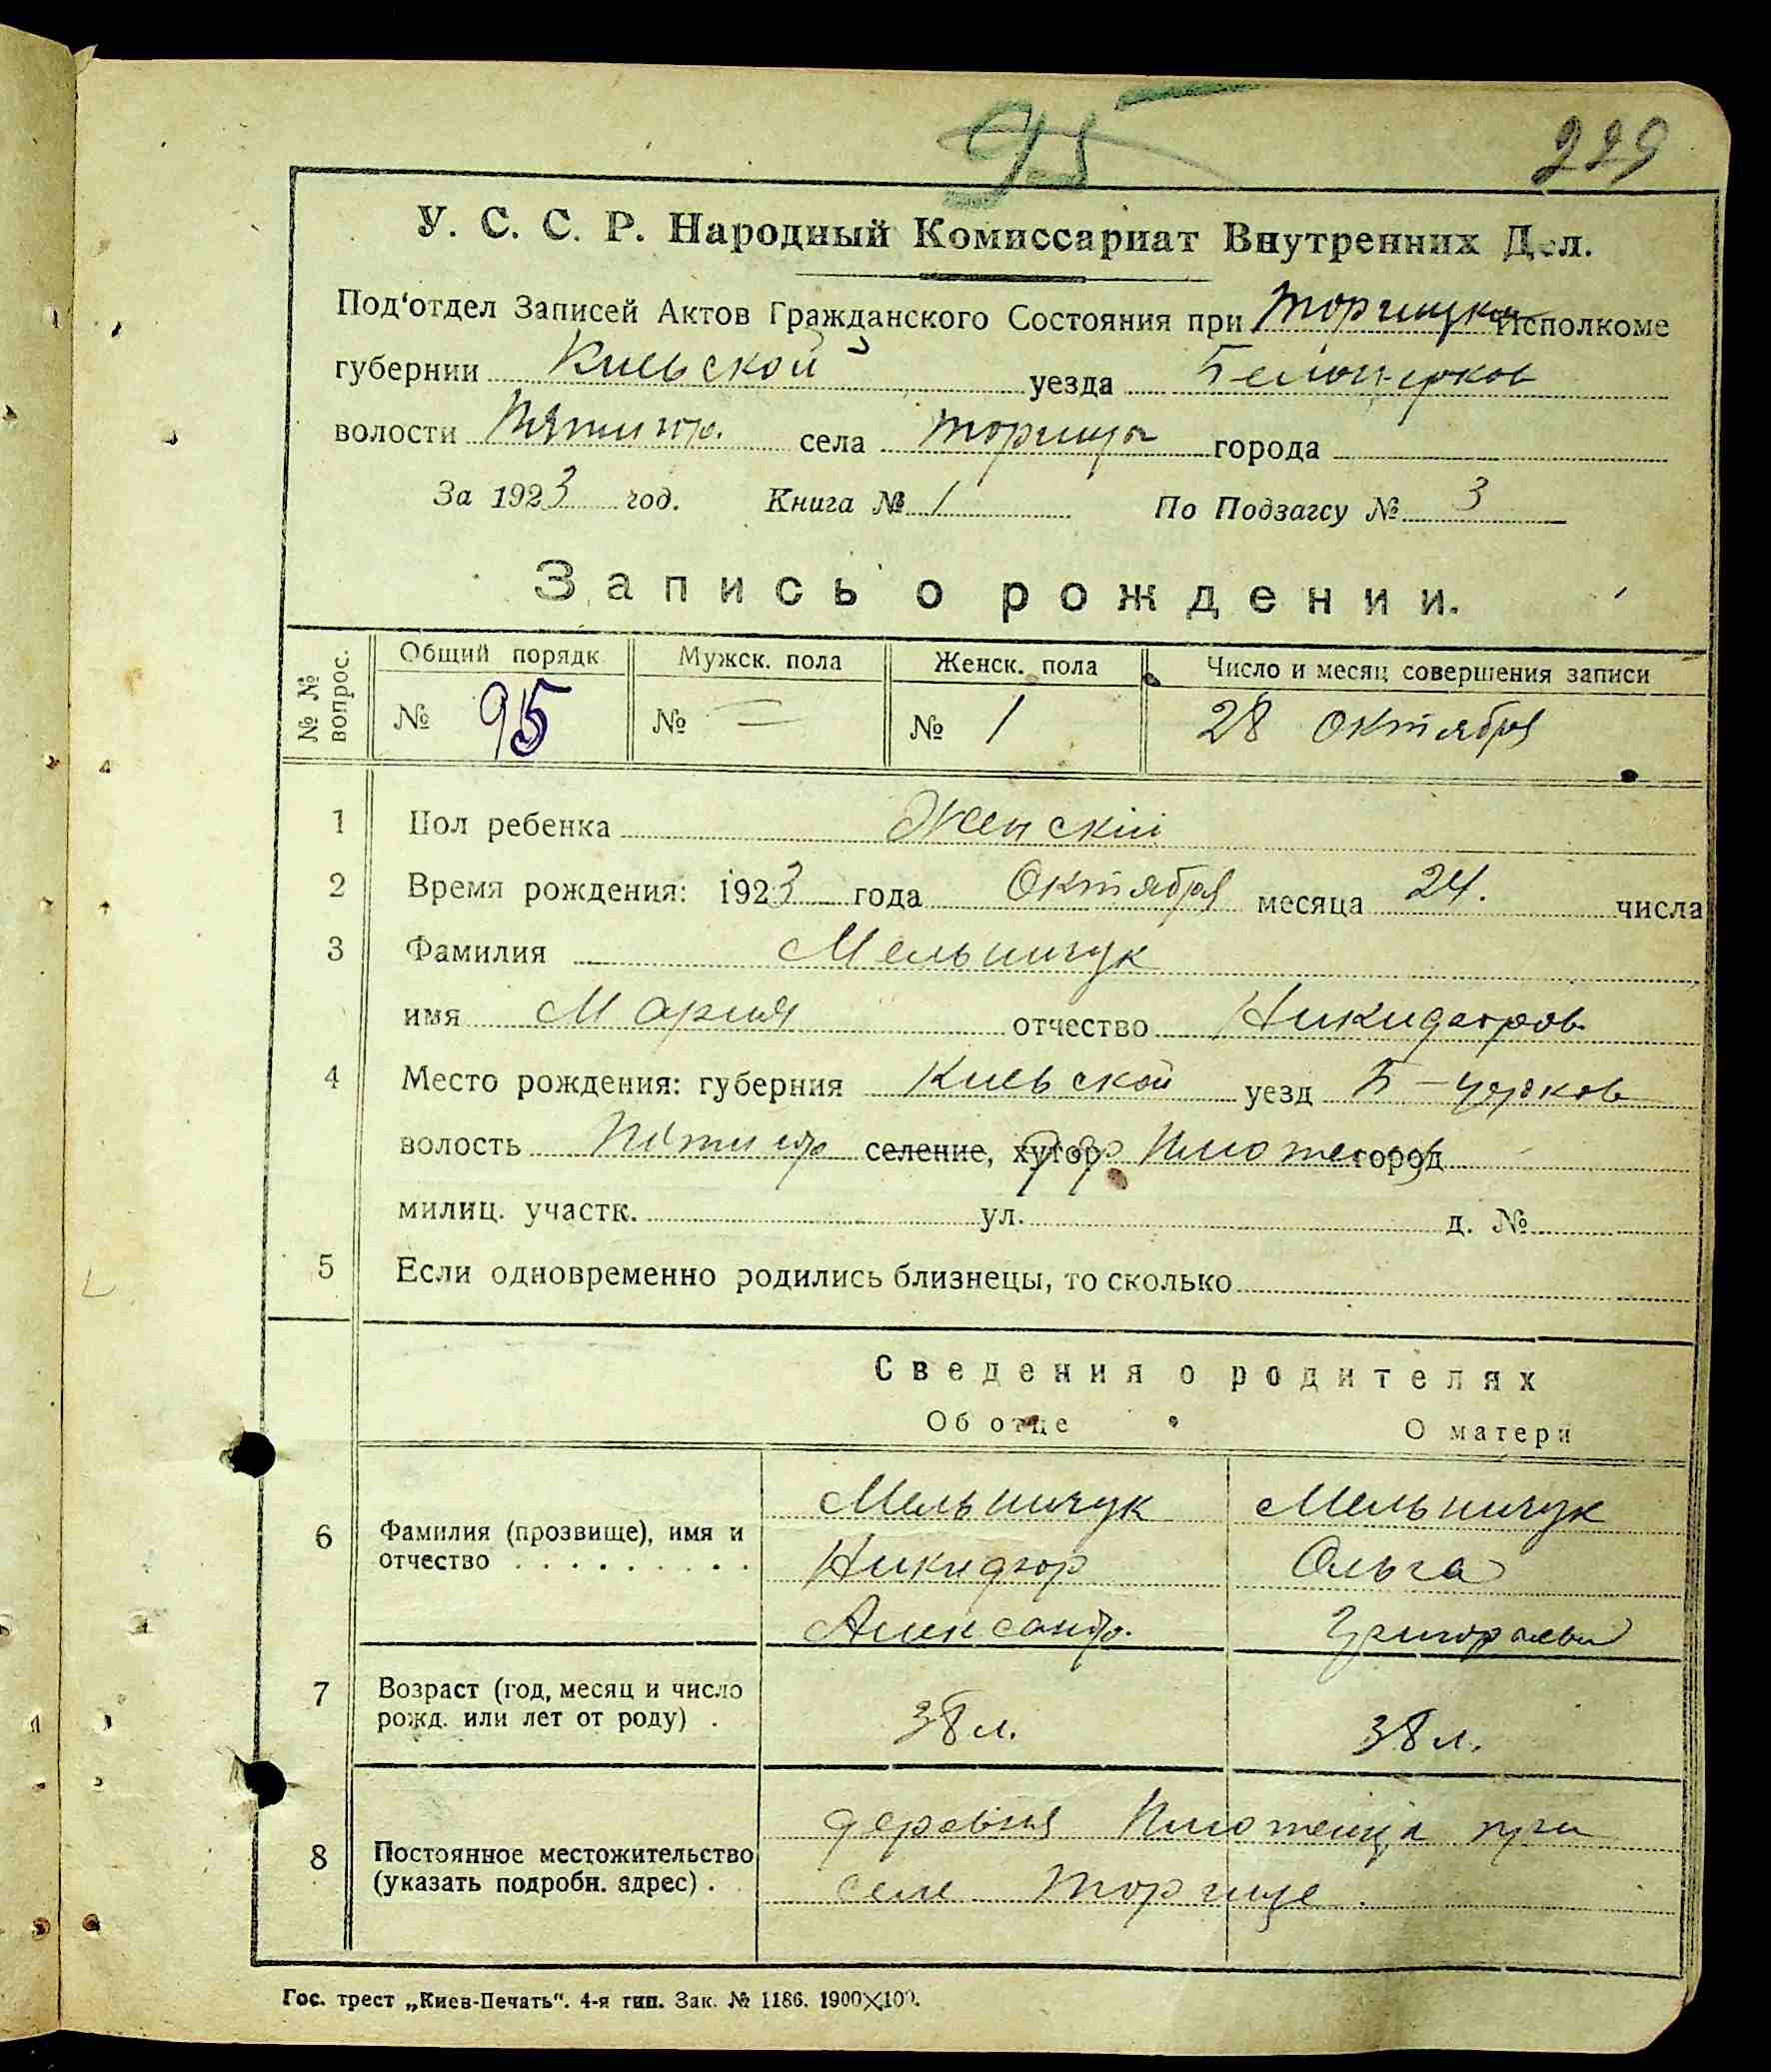 95
229
У. С. С. Р. Народный Комиссариат Внутренних Дел.
Под'отдел Записей Актов Гражданского Состояния при Торчицком Исполкоме
губернии Киевской уезда Белоцерков
волости Пятигор. села Торчица города
За 1923 год. Книга № 1 По Подзагсу № 3
Запись о рождении.
№ № вопрос. Общий порядк Мужск. пола Женск. пола Число и месяц совершения записи
№ 95 № = № 1 28 Октября
1 Пол ребенка Женскій
2 Время рождения: 1923 года Октября месяца 24. числа
3 Фамилия Мельничук
имя Мария отчество Никифоров
4 Место рождения: губерния Киевской уезд Б-церков
волость Пятигор селение, хутор город
милиц. участк. ул. д. №
5 Если одновременно родились близнецы, то сколько
Сведения о родителях
Об отце О матери
6 Фамилия (прозвище), имя и отчество . . . . . . . . .
Мельничук Мельничук
Никифор Ольга
Александр. Григорьевн
7 Возраст (год, месяц и число рожд. или лет от роду) . 38 л. 38 л.
8 Постоянное местожительство (указать подробн. адрес) .
деревня при
селе Торчице.
Гос. трест „Киев-Печать". 4-я тип. Зак. № 1186. 1900×100.